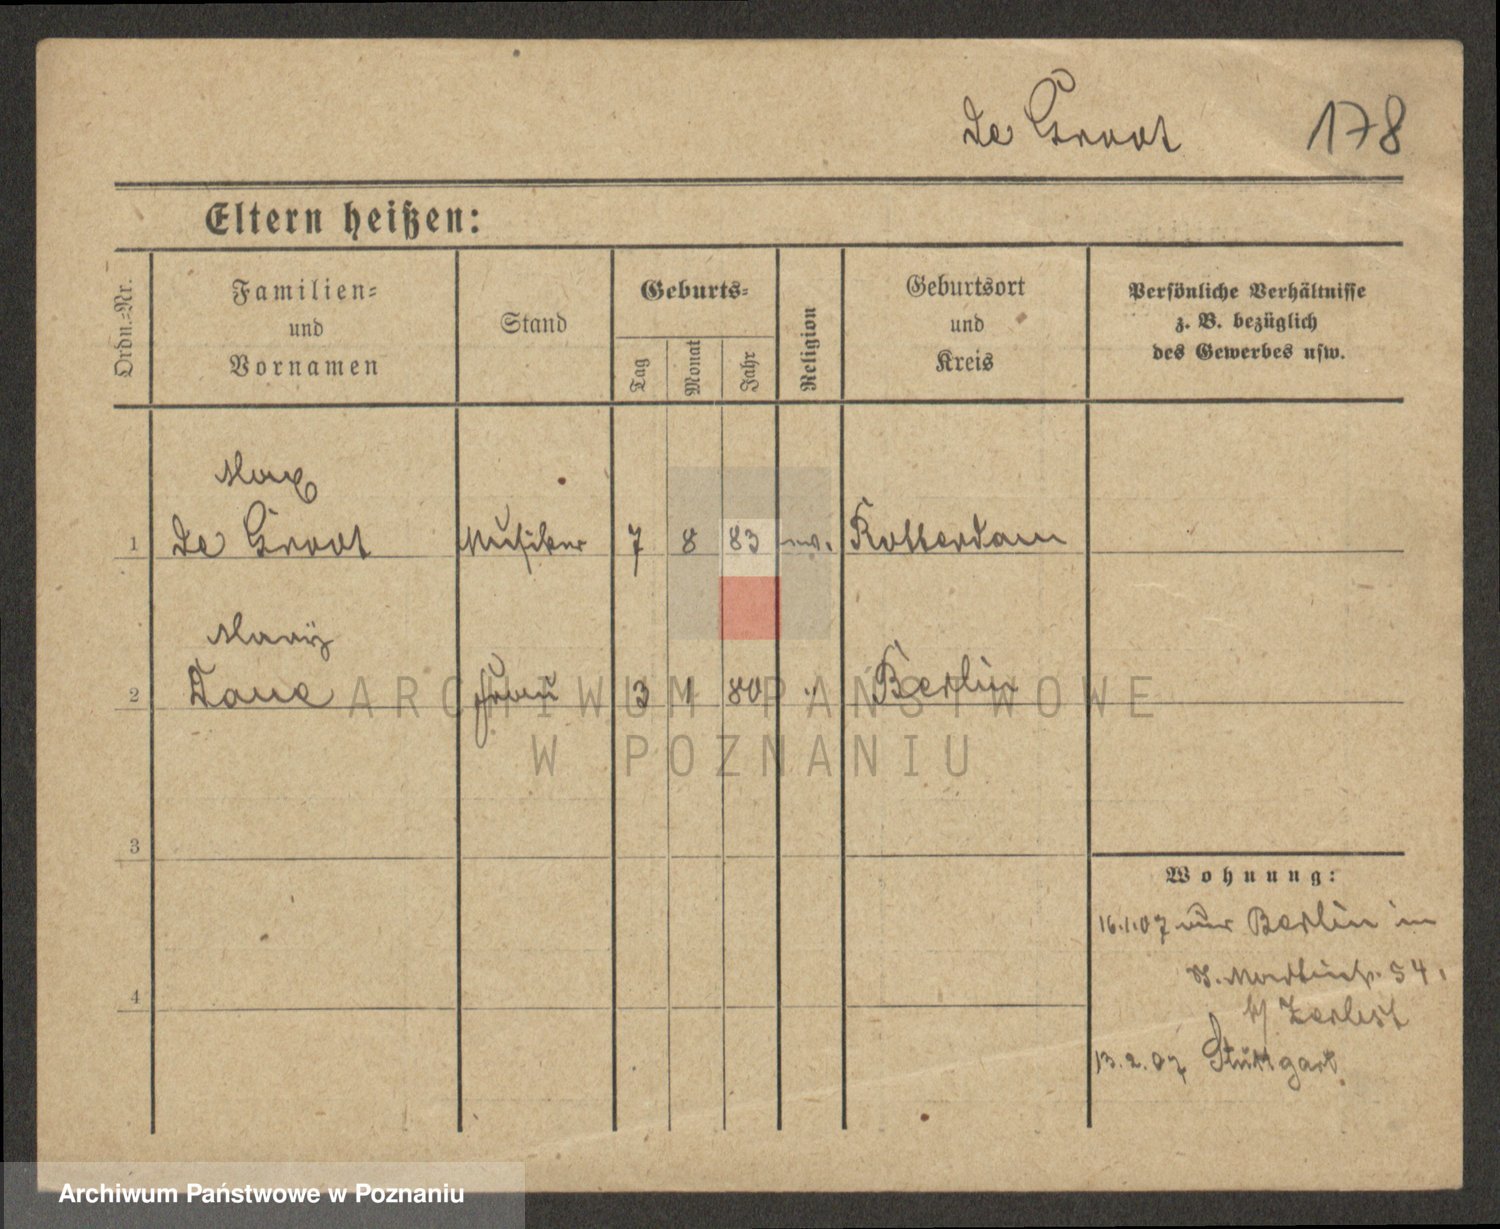 de Groot 178
Eltern heißen:
Ordn.-Nr.
Familien-
und
Vornamen
Stand
Geburts-
Tag
Monat
Jahr
Religion
Geburtsort
und
Kreis
Persönliche Verhältnisse
z. B. bezüglich
des Gewerbes usw.
Max
1 de Groot Musiker 7 8 83 Rotterdam
2 Frau 3 1 80 " Berlin
ARCHIWUM PAŃSTWOWE
W POZNANIU
3
Wohnung:
16.1.07 Berlin in
St. Martinstr. 54,
b/ Zerbst
4
13.2.07 Stuttgart
Archiwum Państwowe w Poznaniu